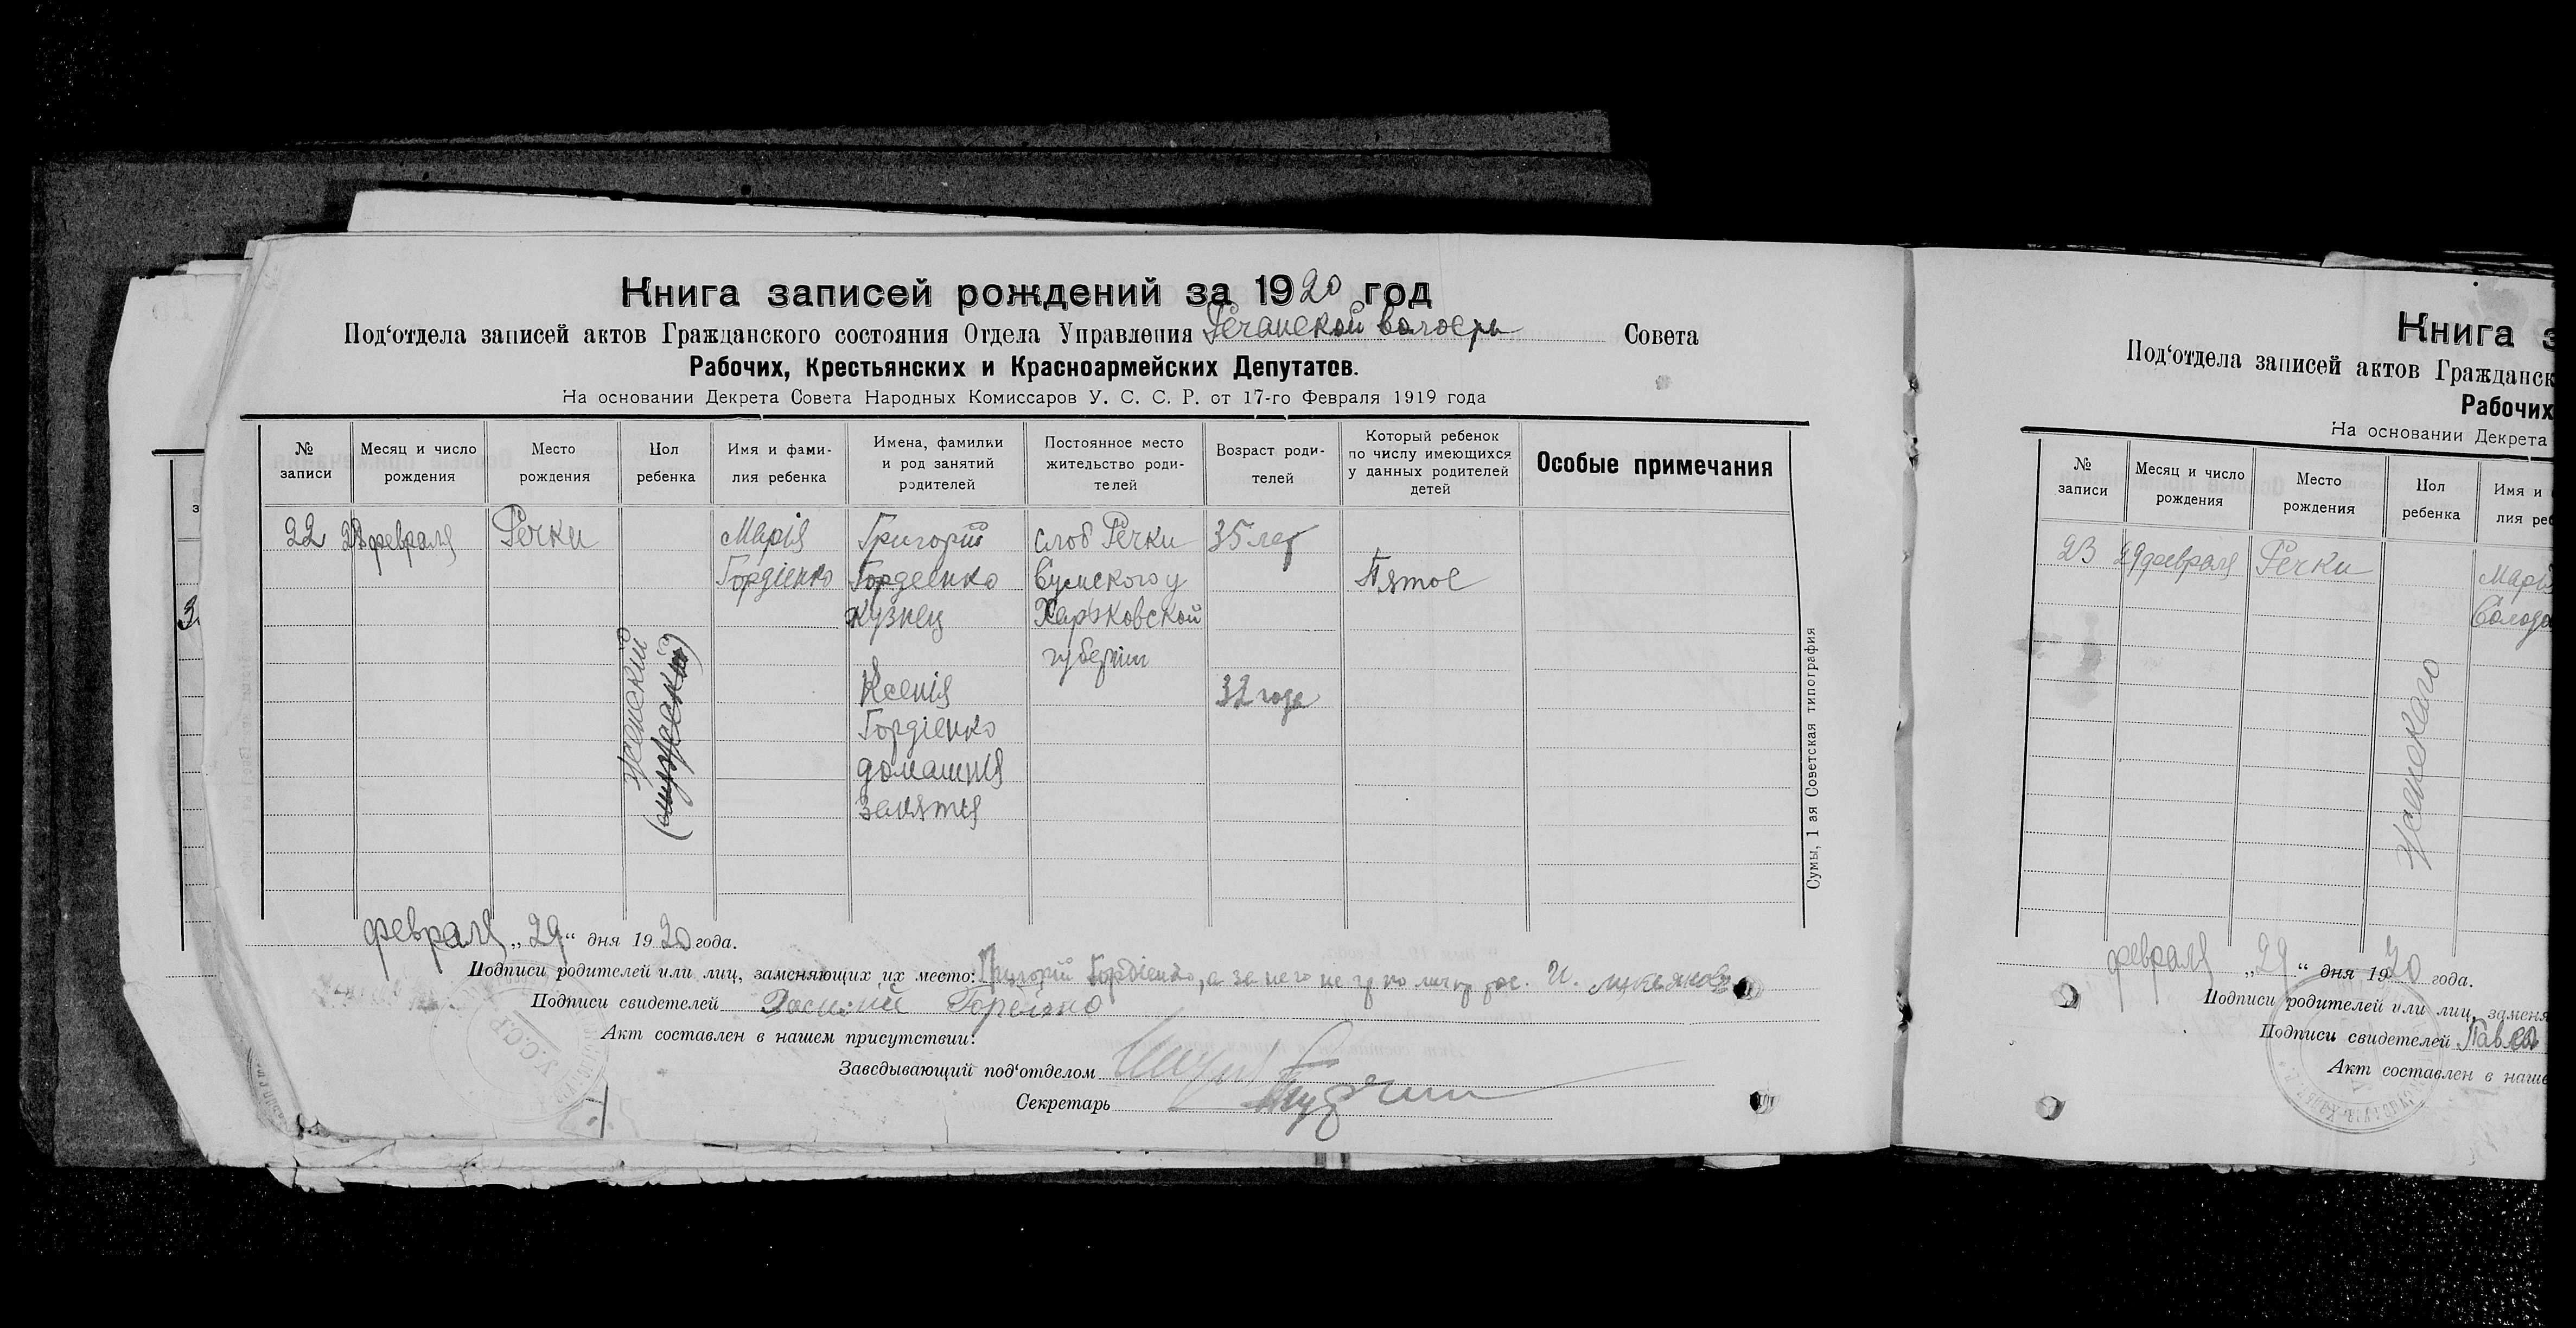 Книга записей рождений за 1920 год
Под‘отдела записей актов Гражданского состояния Отдела Управления Речанской волости Совета
Рабочих, Крестьянских и Красноармейских Депутатов.
На основании Декрета Совета Народных Комиссаров У. С. С. Р. от 17-го Февраля 1919 года
№ записи
Месяц и число рождения
Место рождения
Пол ребенка
Имя и фами-
лия ребенка
Имена, фамилии
и род занятий
родителей
Постоянное место
жительство роди-
телей
Возраст роди-
телей
Который ребенок
по числу имеющихся
у данных родителей
детей
Особые примечания
22
28 февраля
Речки
женский
(мужеский)
Марія
Гордіенко
Григорій
Гордеенко
кузнец
Ксенія
Гордіенко
домашнія
занятія
слоб Речки
Сумского у
Харьковской
губерніи
35 лет
32 года
Пятое
Сумы, 1 ая Советская типография
февраля „29“ дня 1920 года.
Подписи родителей или лиц, заменяющих их место: Григорій Гордіенко, а за него не гр по личн рос. И.
Подписи свидетелей
Акт составлен в нашем присутствии:
Заведывающий под‘отделом
Секретарь
У.С.С.Р.
Книга з
Под‘отдела записей актов Гражданск
Рабочих
На основании Декрета
№ записи
Месяц и число рождения
Место рождения
Пол ребенка
Имя и
лия реб
23
29 февраля
Речки
женскаго
Марія
февраля „29“ дня 1920 года.
Подписи родителей или лиц, заменя
Подписи свидетелей Павел
Акт составлен в наше